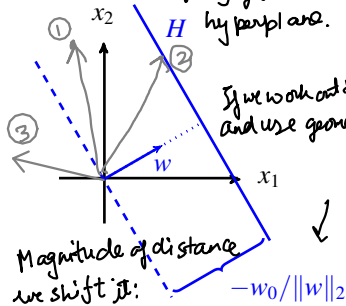 hyperplane.
x₂
H
①
②
③
If we work out
and use geom
w
x₁
Magnitude of distance
we shift it:
−w₀/‖w‖₂